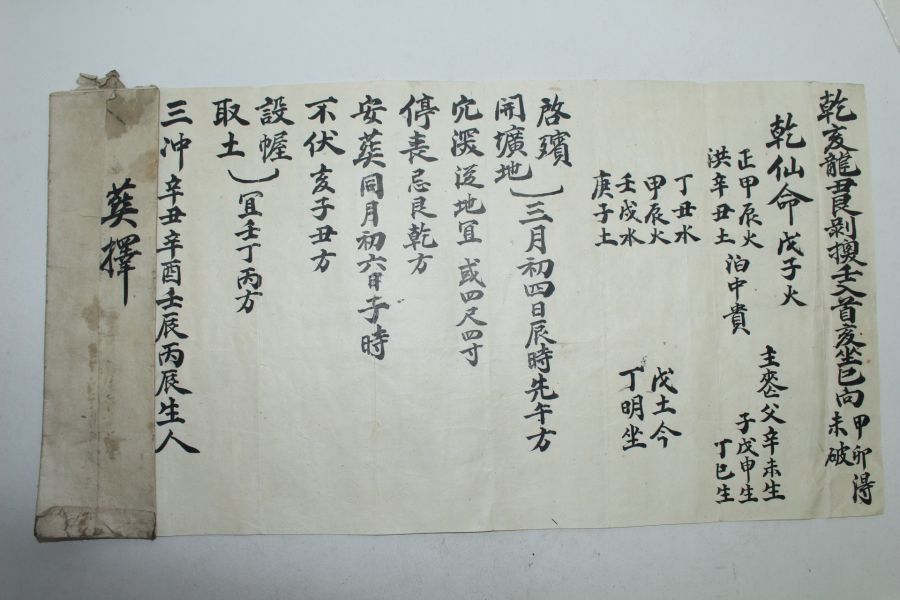 乾亥龍艮剝換壬入首亥坐巳向 甲卯得
未破
乾仙命 戊子火
正甲辰火
洪辛丑土 泊中貴
主喪 父辛未生
子戊申生
丁巳生
丁丑水
甲辰火
壬戌水
庚子土
戊土今
丁明坐
啓殯
開壙地 三月初四日辰時先午方
穴深淺地宜 或四尺四寸
停丧忌艮乾方
安葬同月初六日子時
不伏亥子丑方
設幄
取土 宜壬丁丙方
三冲 辛丑辛酉壬辰丙辰生人
葬擇